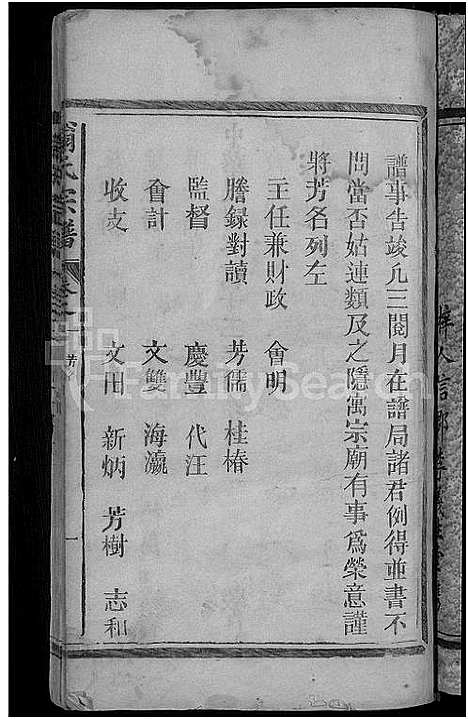 譜事告竣凢三閱月在譜局諸君例得並書不
問當否姑連類及之隱寓宗廟有事爲榮意謹
將芳名列左
主任兼財政 會明
謄録對讀 芳儒 桂椿
監督 慶豐 代汪
會計 文雙 海瀛
收支 文田 新炳 芳樹 志和
氏宗譜
一
FamilySearch